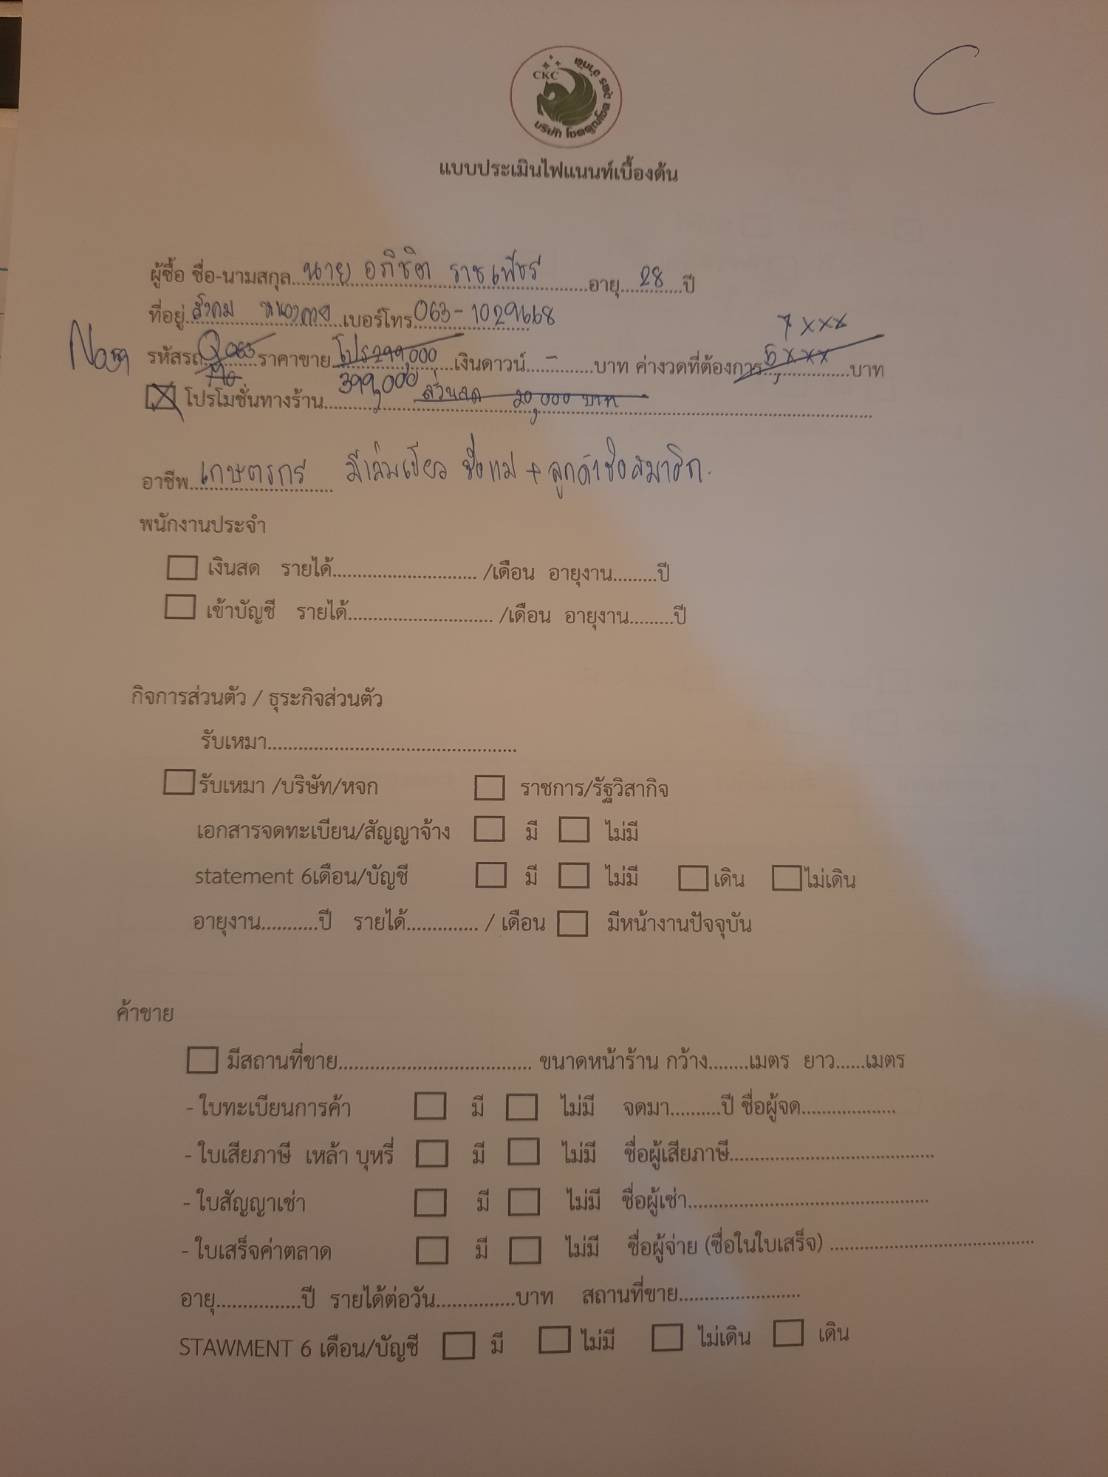 C
CKC
แบบประเมินไฟแนนท์เบื้องต้น
ผู้ซื้อ ชื่อ-นามสกุล นาย อภิชิต ราชเพ็ชร์ อายุ 28 ปี
ที่อยู่ สังคม เบอร์โทร 063-1029668
7 xxx
รหัสรถ Q063 ราคาขาย โปร 299,000 เงินดาวน์ - บาท ค่างวดที่ต้องการ 5,xxx บาท
399,000
โปรโมชั่นทางร้าน ส่วนลด 20,000 บาท
อาชีพ เกษตรกร มีเล่มเขียว ชื่อแม่ + ลูกค้าชื่อสมาชิก.
พนักงานประจำ
เงินสด รายได้ /เดือน อายุงาน ปี
เข้าบัญชี รายได้ /เดือน อายุงาน ปี
กิจการส่วนตัว / ธุระกิจส่วนตัว
รับเหมา
รับเหมา /บริษัท/หจก ราชการ/รัฐวิสากิจ
เอกสารจดทะเบียน/สัญญาจ้าง มี ไม่มี
statement 6เดือน/บัญชี มี ไม่มี เดิน ไม่เดิน
อายุงาน ปี รายได้ / เดือน มีหน้างานปัจจุบัน
ค้าขาย
มีสถานที่ขาย ขนาดหน้าร้าน กว้าง เมตร ยาว เมตร
- ใบทะเบียนการค้า มี ไม่มี จดมา ปี ชื่อผู้จด
- ใบเสียภาษี เหล้า บุหรี่ มี ไม่มี ชื่อผู้เสียภาษี
- ใบสัญญาเช่า มี ไม่มี ชื่อผู้เช่า
- ใบเสร็จค่าตลาด มี ไม่มี ชื่อผู้จ่าย (ชื่อในใบเสร็จ)
อายุ ปี รายได้ต่อวัน บาท สถานที่ขาย
STAWMENT 6 เดือน/บัญชี มี ไม่มี ไม่เดิน เดิน